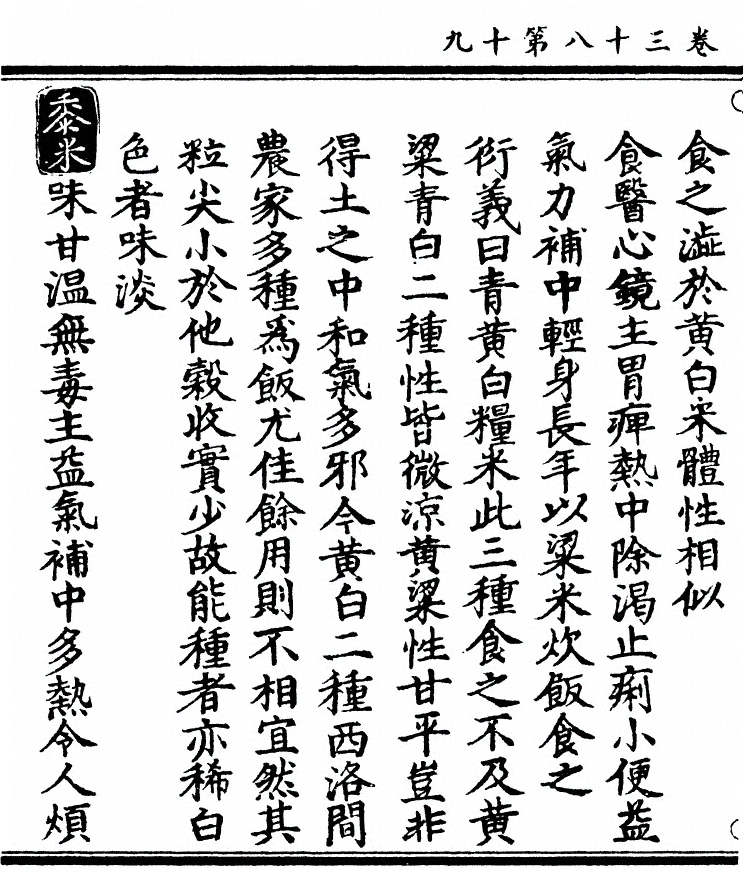 卷三十八第十九
食之澁於黃白米體性相似
食醫心鏡主胃痺熱中除渴止痢小便益
氣力補中輕身長年以粱米炊飯食之
衍義曰青黃白糧米此三種食之不及黃
粱青白二種性皆微涼黃粱性甘平豈非
得土之中和氣多邪今黃白二種西洛間
農家多種爲飯尤佳餘用則不相宜然其
粒尖小於他榖收實少故能種者亦稀白
色者味淡
黍米味甘温無毒主益氣補中多熱令人煩